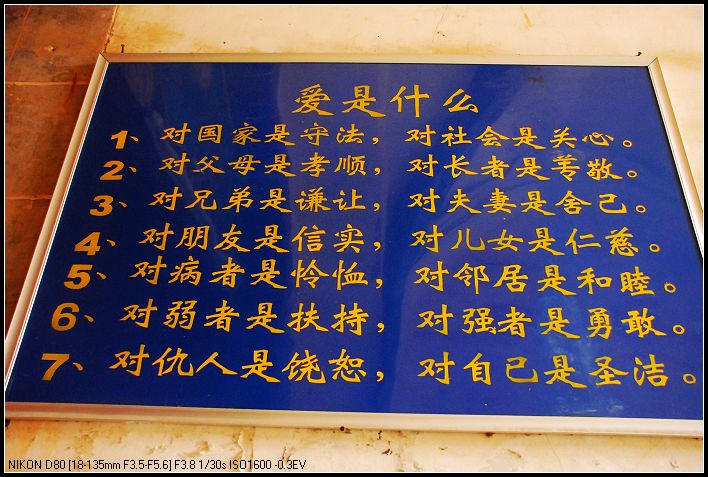 爱是什么
1、对国家是守法，对社会是关心。
2、对父母是孝顺，对长者是善敬。
3、对兄弟是谦让，对夫妻是舍己。
4、对朋友是信实，对儿女是仁慈。
5、对病者是怜恤，对邻居是和睦。
6、对弱者是扶持，对强者是勇敢。
7、对仇人是饶恕，对自己是圣洁。
NIKON D80 [18-135mm F3.5-F5.6] F3.8 1/30s ISO1600 -0.3EV